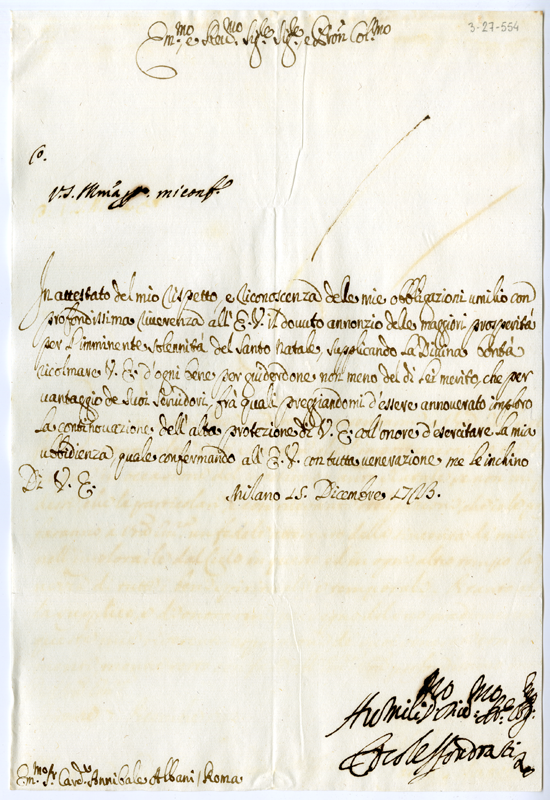 3-27-554
Em.mo e Reu.mo Sig.re Sig.re e Pron Col.mo
Co.
V.S. miconf.
In attestato del mio rispetto, e riconoscenza delle mie obbligazioni umilio con
profondissima riuerenza all' E. V. il douuto annonzio delle maggiori prosperità
per l'imminente solennità del Santo Natale, supplicando la Diuina bontà
ricolmare V. E. d'ogni bene per guiderdone non meno del di lei merito, che per
vantaggio de Suoi Seruidori, frà quali preggiandomi d'essere annouerato imploro
la continouazione dell' alta protezione di V. E. coll' onore d'esercitare la mia
vbbidienza, quale confermando all' E. V. con tutta venerazione me le inchino
Di V. E.
Milano 15. Dicembre 1723.
Humiliss.mo
Em.mo Sr Card.le Annibale Albani / Roma